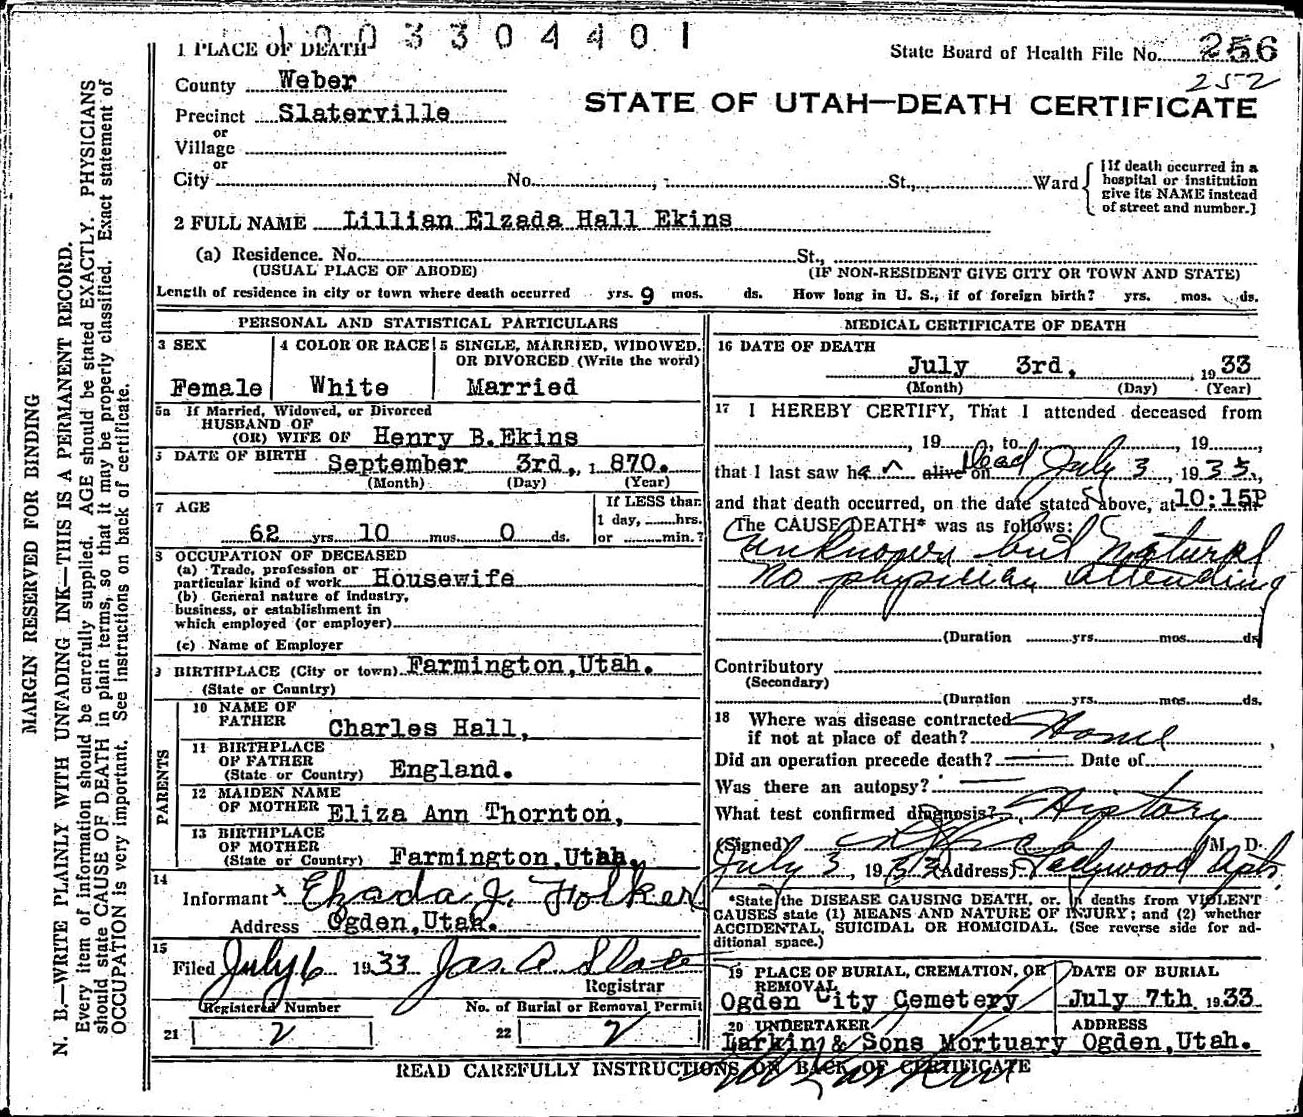 1003304401
1 PLACE OF DEATH
State Board of Health File No. 256
252
County Weber
STATE OF UTAH—DEATH CERTIFICATE
Precinct Slaterville
or
Village
or
City No. St., Ward
[If death occurred in a hospital or institution give its NAME instead of street and number.]
2 FULL NAME Lillian Elzada Hall Ekins
(a) Residence. No. St.,
(USUAL PLACE OF ABODE) (IF NON-RESIDENT GIVE CITY OR TOWN AND STATE)
Length of residence in city or town where death occurred yrs. 9 mos. ds. How long in U. S., if of foreign birth? yrs. mos. ds.
PERSONAL AND STATISTICAL PARTICULARS
3 SEX 4 COLOR OR RACE 5 SINGLE, MARRIED, WIDOWED,
OR DIVORCED (Write the word)
Female White Married
5a If Married, Widowed, or Divorced
HUSBAND OF
(OR) WIFE OF Henry B.Ekins
DATE OF BIRTH September 3rd., 1 870.
(Month) (Day) (Year)
7 AGE If LESS than
1 day, hrs.
62 yrs. 10 mos. 0 ds. or min.?
8 OCCUPATION OF DECEASED
(a) Trade, profession or
particular kind of work Housewife
(b) General nature of industry,
business, or establishment in
which employed (or employer)
(c) Name of Employer
9 BIRTHPLACE (City or town) Farmington,Utah.
(State or Country)
PARENTS
10 NAME OF
FATHER Charles Hall,
11 BIRTHPLACE
OF FATHER
(State or Country) England.
12 MAIDEN NAME
OF MOTHER Eliza Ann Thornton,
13 BIRTHPLACE
OF MOTHER
(State or Country) Farmington,Utah,
14
Informant x Elzada J. Folker
Address Ogden,Utah.
15
Filed July 6 1933 Jas. A Slate
Registrar
Registered Number No. of Burial or Removal Permit
21 2 22 2
MEDICAL CERTIFICATE OF DEATH
16 DATE OF DEATH
July 3rd, 1933
(Month) (Day) (Year)
17 I HEREBY CERTIFY, That I attended deceased from
, 19 , to , 19 ,
that I last saw her alive on Dead July 3, 1933,
and that death occurred, on the date stated above, at 10:15P m
The CAUSE DEATH* was as follows:
Unknown but Natural
No physician attending
(Duration yrs. mos. ds.
Contributory
(Secondary)
(Duration yrs. mos. ds.
18 Where was disease contracted
if not at place of death? Home
Did an operation precede death? — Date of
Was there an autopsy? —
What test confirmed diagnosis? History
(Signed) M. D.
July 3, 1933 (Address) Ledgwood Apts.
*State the DISEASE CAUSING DEATH, or, in deaths from VIOLENT
CAUSES state (1) MEANS AND NATURE OF INJURY; and (2) whether
ACCIDENTAL, SUICIDAL OR HOMICIDAL. (See reverse side for ad-
ditional space.)
19 PLACE OF BURIAL, CREMATION, OR
REMOVAL DATE OF BURIAL
Ogden City Cemetery July 7th 1933
20 UNDERTAKER ADDRESS
Larkin & Sons Mortuary Ogden,Utah.
READ CAREFULLY INSTRUCTIONS ON BACK OF CERTIFICATE
MARGIN RESERVED FOR BINDING
N. B.—WRITE PLAINLY WITH UNFADING INK—THIS IS A PERMANENT RECORD.
Every item of information should be carefully supplied. AGE should be stated EXACTLY. PHYSICIANS
should state CAUSE OF DEATH in plain terms, so that it may be properly classified. Exact statement of
OCCUPATION is very important. See instructions on back of certificate.